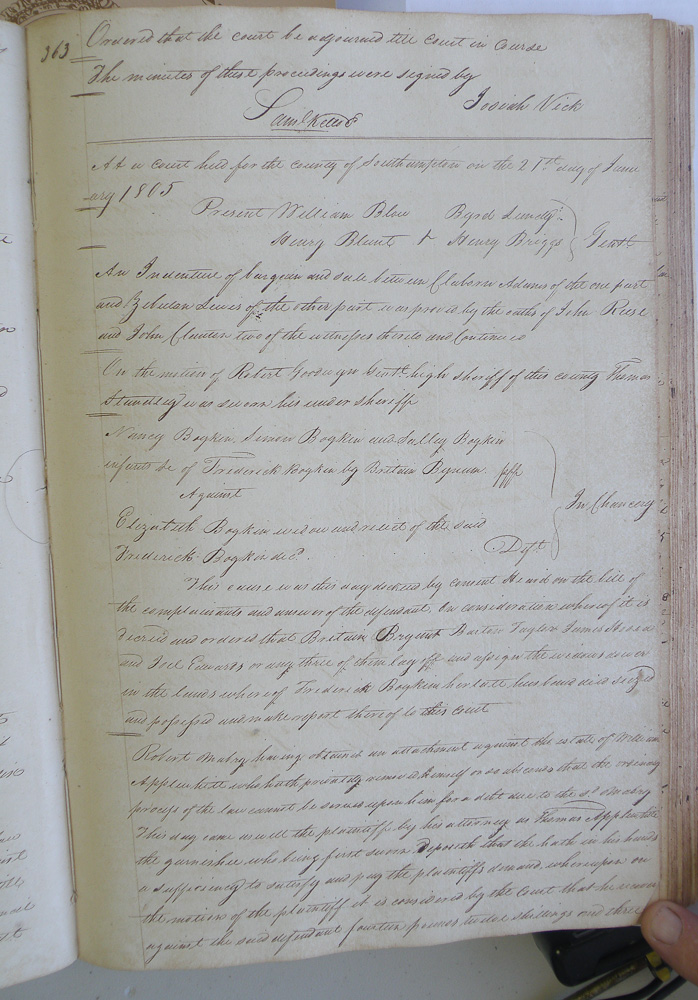 363
Ordered that the court be adjourned till court in course
The minutes of these proceedings were signed by
Josiah Vick
Saml Kello
At a court held for the county of Southampton on the 21st day of Janu
ary 1805
Present William Blow Byrd Lundy
Henry Blunt & Henry Briggs Gentl
An Indenture of bargain and sale between Claborn Adams of the one part
and Zebulon Lewis of the other part was proved by the oaths of John Reese
and John Clanton two of the witnesses thereto and Continued
On the motion of Robert Goodwyn Gentl. high sheriff of this county Thomas
was sworn his under sheriff
Nancy Boykin, Boykin and Salley Boykin
infants &c of Frederick Boykin by Britain plff
Against
Elizabeth Boykin widow and relict of the said
Frederick Boykin decd. Deft
In Chancery
This cause was this day docketed by consent Heard on the bill of
the complainants and answer of the defendant. On consideration whereof it is
decreed and ordered that Britain Bryant Taylor James
and Joel Edwards or any three of them lay off and assign the widows dower
in the lands whereof Frederick Boykin her late husband died seized
and possessed and make report thereof to this court
Robert Mabry having obtained an attachment against the estate of William
Applewhite who hath privately removed himself or so absconds that the ordinary
process of the law cannot be served upon him for a debt due to the sd. Mabry
This day came as well the plaintiff by his attorney as Thomas Applewhite
the garnishee who being first sworn deposeth that he hath in his hands
a sufficiency to satisfy and pay the plaintiffs demand, whereupon on
the motion of the plaintiff it is considered by the Court that he recover
against the said defendant fourteen pounds twelve shillings and three